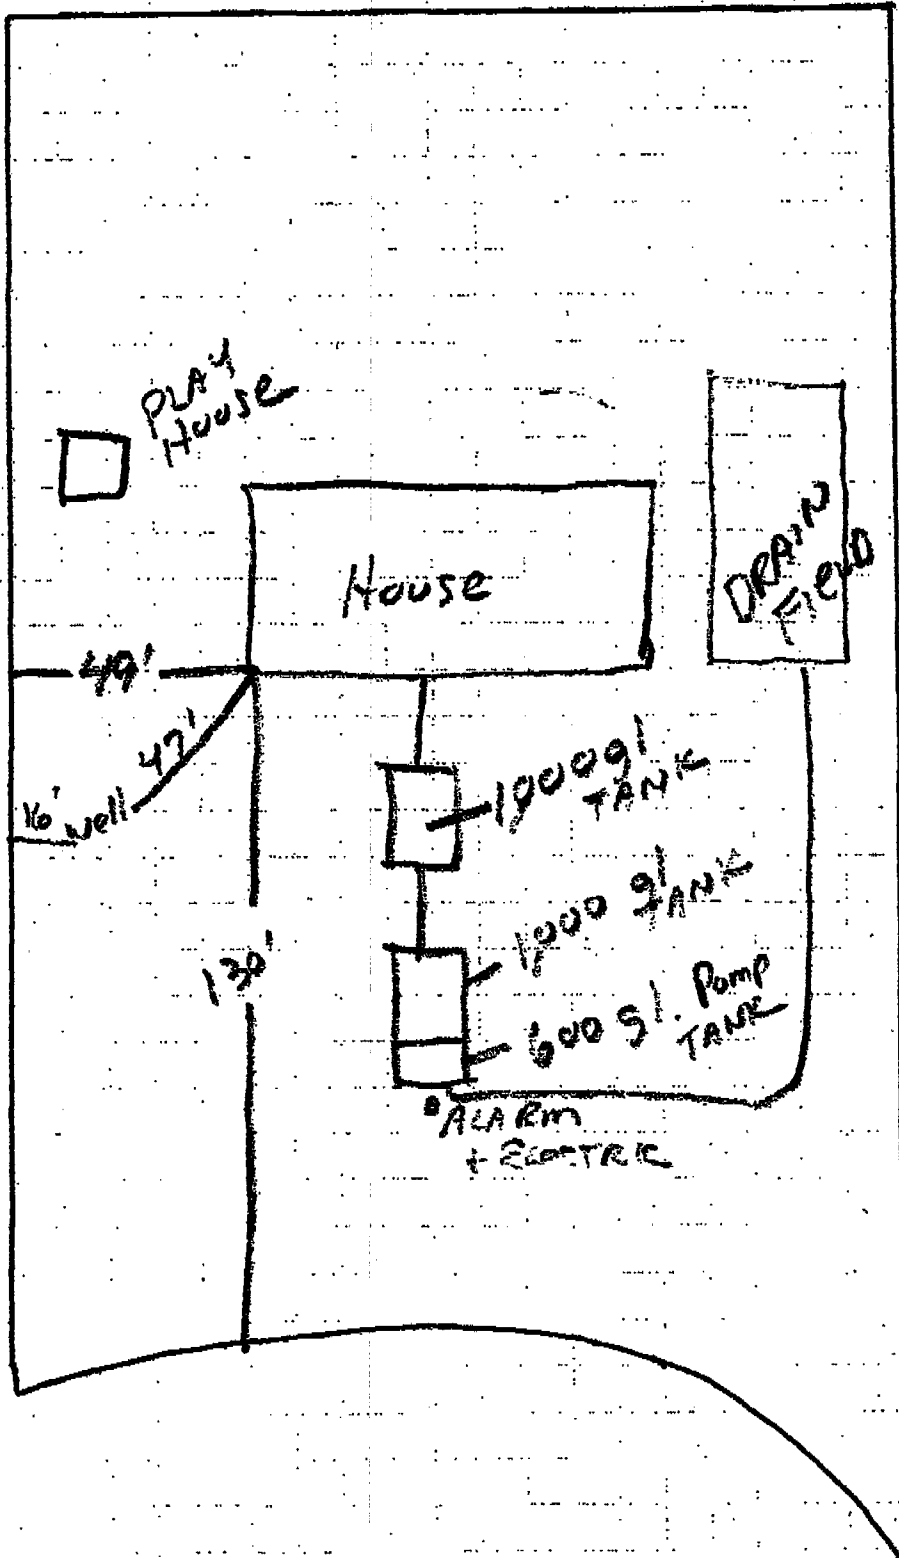 PLAY
House
House
DRAIN
FIELD
49'
47'
16' well
1,000 gl
TANK
1,000 gl TANK
130'
600 gl. Pump
TANK
ALARM
+ ELECTRIC